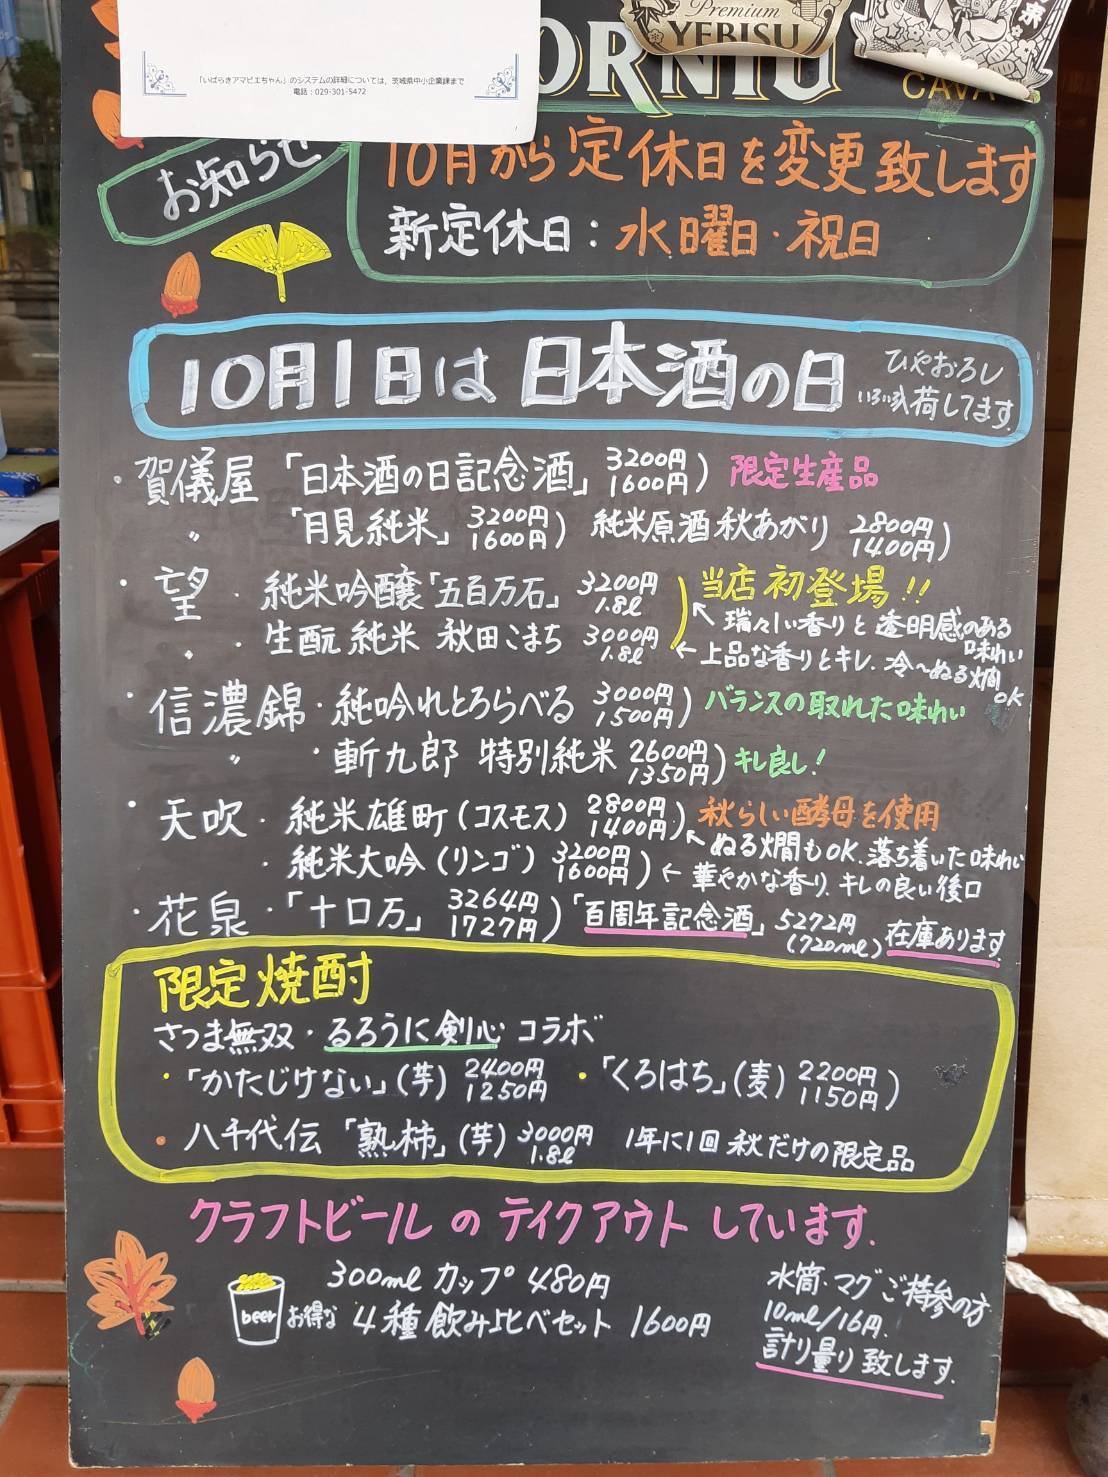 「いばらきアマビエちゃん」のシステムの詳細については、茨城県中小企業課まで
電話：029-301-5472
Premium
YEBISU
ORNIU
CAVA
お知らせ
10月から定休日を変更致します
新定休日：水曜日・祝日
10月1日は日本酒の日
ひやおろし
いろいろ入荷してます。
・賀儀屋「日本酒の日記念酒」3200円 1600円) 限定生産品
〃「月見純米」3200円 1600円) 純米原酒 秋あがり 2800円 1400円)
・望・純米吟醸「五百万石」3200円 1.8ℓ 当店初登場!!
←瑞々しい香りと透明感のある味わい
〃・生酛純米 秋田こまち 3000円 1.8ℓ ←上品な香りとキレ。冷〜ぬる燗OK
・信濃錦・純吟れとろらべる 3000円 1500円) バランスの取れた味わい
〃・斬九郎 特別純米 2600円 1350円) キレ良し!
・天吹・純米雄町(コスモス) 2800円 1400円) 秋らしい酵母を使用
←ぬる燗もOK。落ち着いた味わい
・純米大吟(リンゴ) 3200円 1600円) ←華やかな香り、キレの良い後口
・花泉・「十口万」3264円 1727円)「百周年記念酒」5272円 (720ml) 在庫あります。
限定焼酎
さつま無双・るろうに剣心 コラボ
・「かたじけない」(芋) 2400円 1250円 ・「くろはち」(麦) 2200円 1150円)
・八千代伝「熟柿」(芋) 3000円 1.8ℓ 1年に1回 秋だけの限定品
クラフトビールのテイクアウトしています。
beer
300ml カップ 480円
お得な 4種飲み比べセット 1600円
水筒・マグご持参の方
10ml/16円。
計り量り致します。